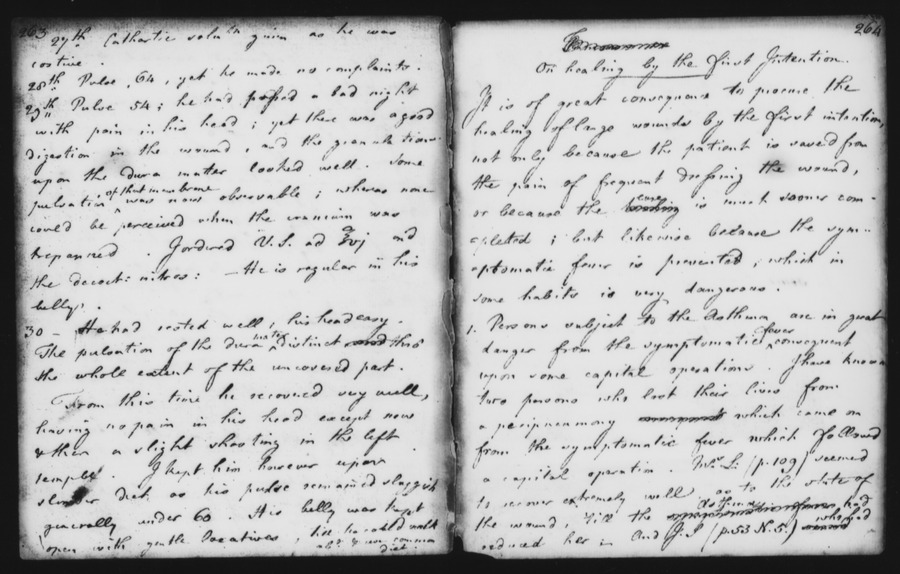 263
27th Cathartic solutn given as he was
costive.
28th Pulse 64, yet he made no complaints.
29th Pulse 54; he had passed a bad night
with pain in his head; yet there was a good
digestion in the wound, and the granulations
upon the Dura mater looked well. Some
pulsation of that membrane was now observable; whereas none
could be perceived when the cranium was
trepanned. I ordered V.S. ad ℥vj and
the decoct: nitros: — He is regular in his
belly.
30 — He had rested well; his head easy.
The pulsation of the dura mater distinct thro'
the whole extent of the uncovered part.
From this time he recovered very well,
having no pain in his head except now
& then a slight shooting in the left
temple. I kept him however upon
slender diet as his pulse remained sluggish
generally under 60. His belly was kept
open with gentle laxatives, till he could walk
abt & use common
diet.
264
On healing by the first Intention.
It is of great consequence to procure the
healing of large wounds by the first intention,
not only because the patient is saved from
the pain of frequent dressing the wound,
or because the cure is much sooner com-
pleted; but likewise because the sym-
ptomatic fever is prevented, which in
some habits is very dangerous.
1. Persons subject to the Asthma are in great
danger from the symptomatic fever consequent
upon some capital operations. I have known
two persons who lost their lives from
a peripneumony which came on
from the symptomatic fever which followed
a capital operation. Mrs L: (p. 109) seemed
to recover extremely well as to the state of
the wound, till the asthma had
reduced her — and J.S (p. 53 N.5.) who had